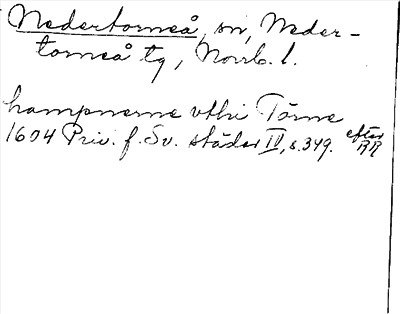 Nedertorneå, sn, Neder-
torneå tg, Norrb. l.
hampnerne vthi Törne
1604 Priv. f. Sv. städer IV, s. 349. efter RR